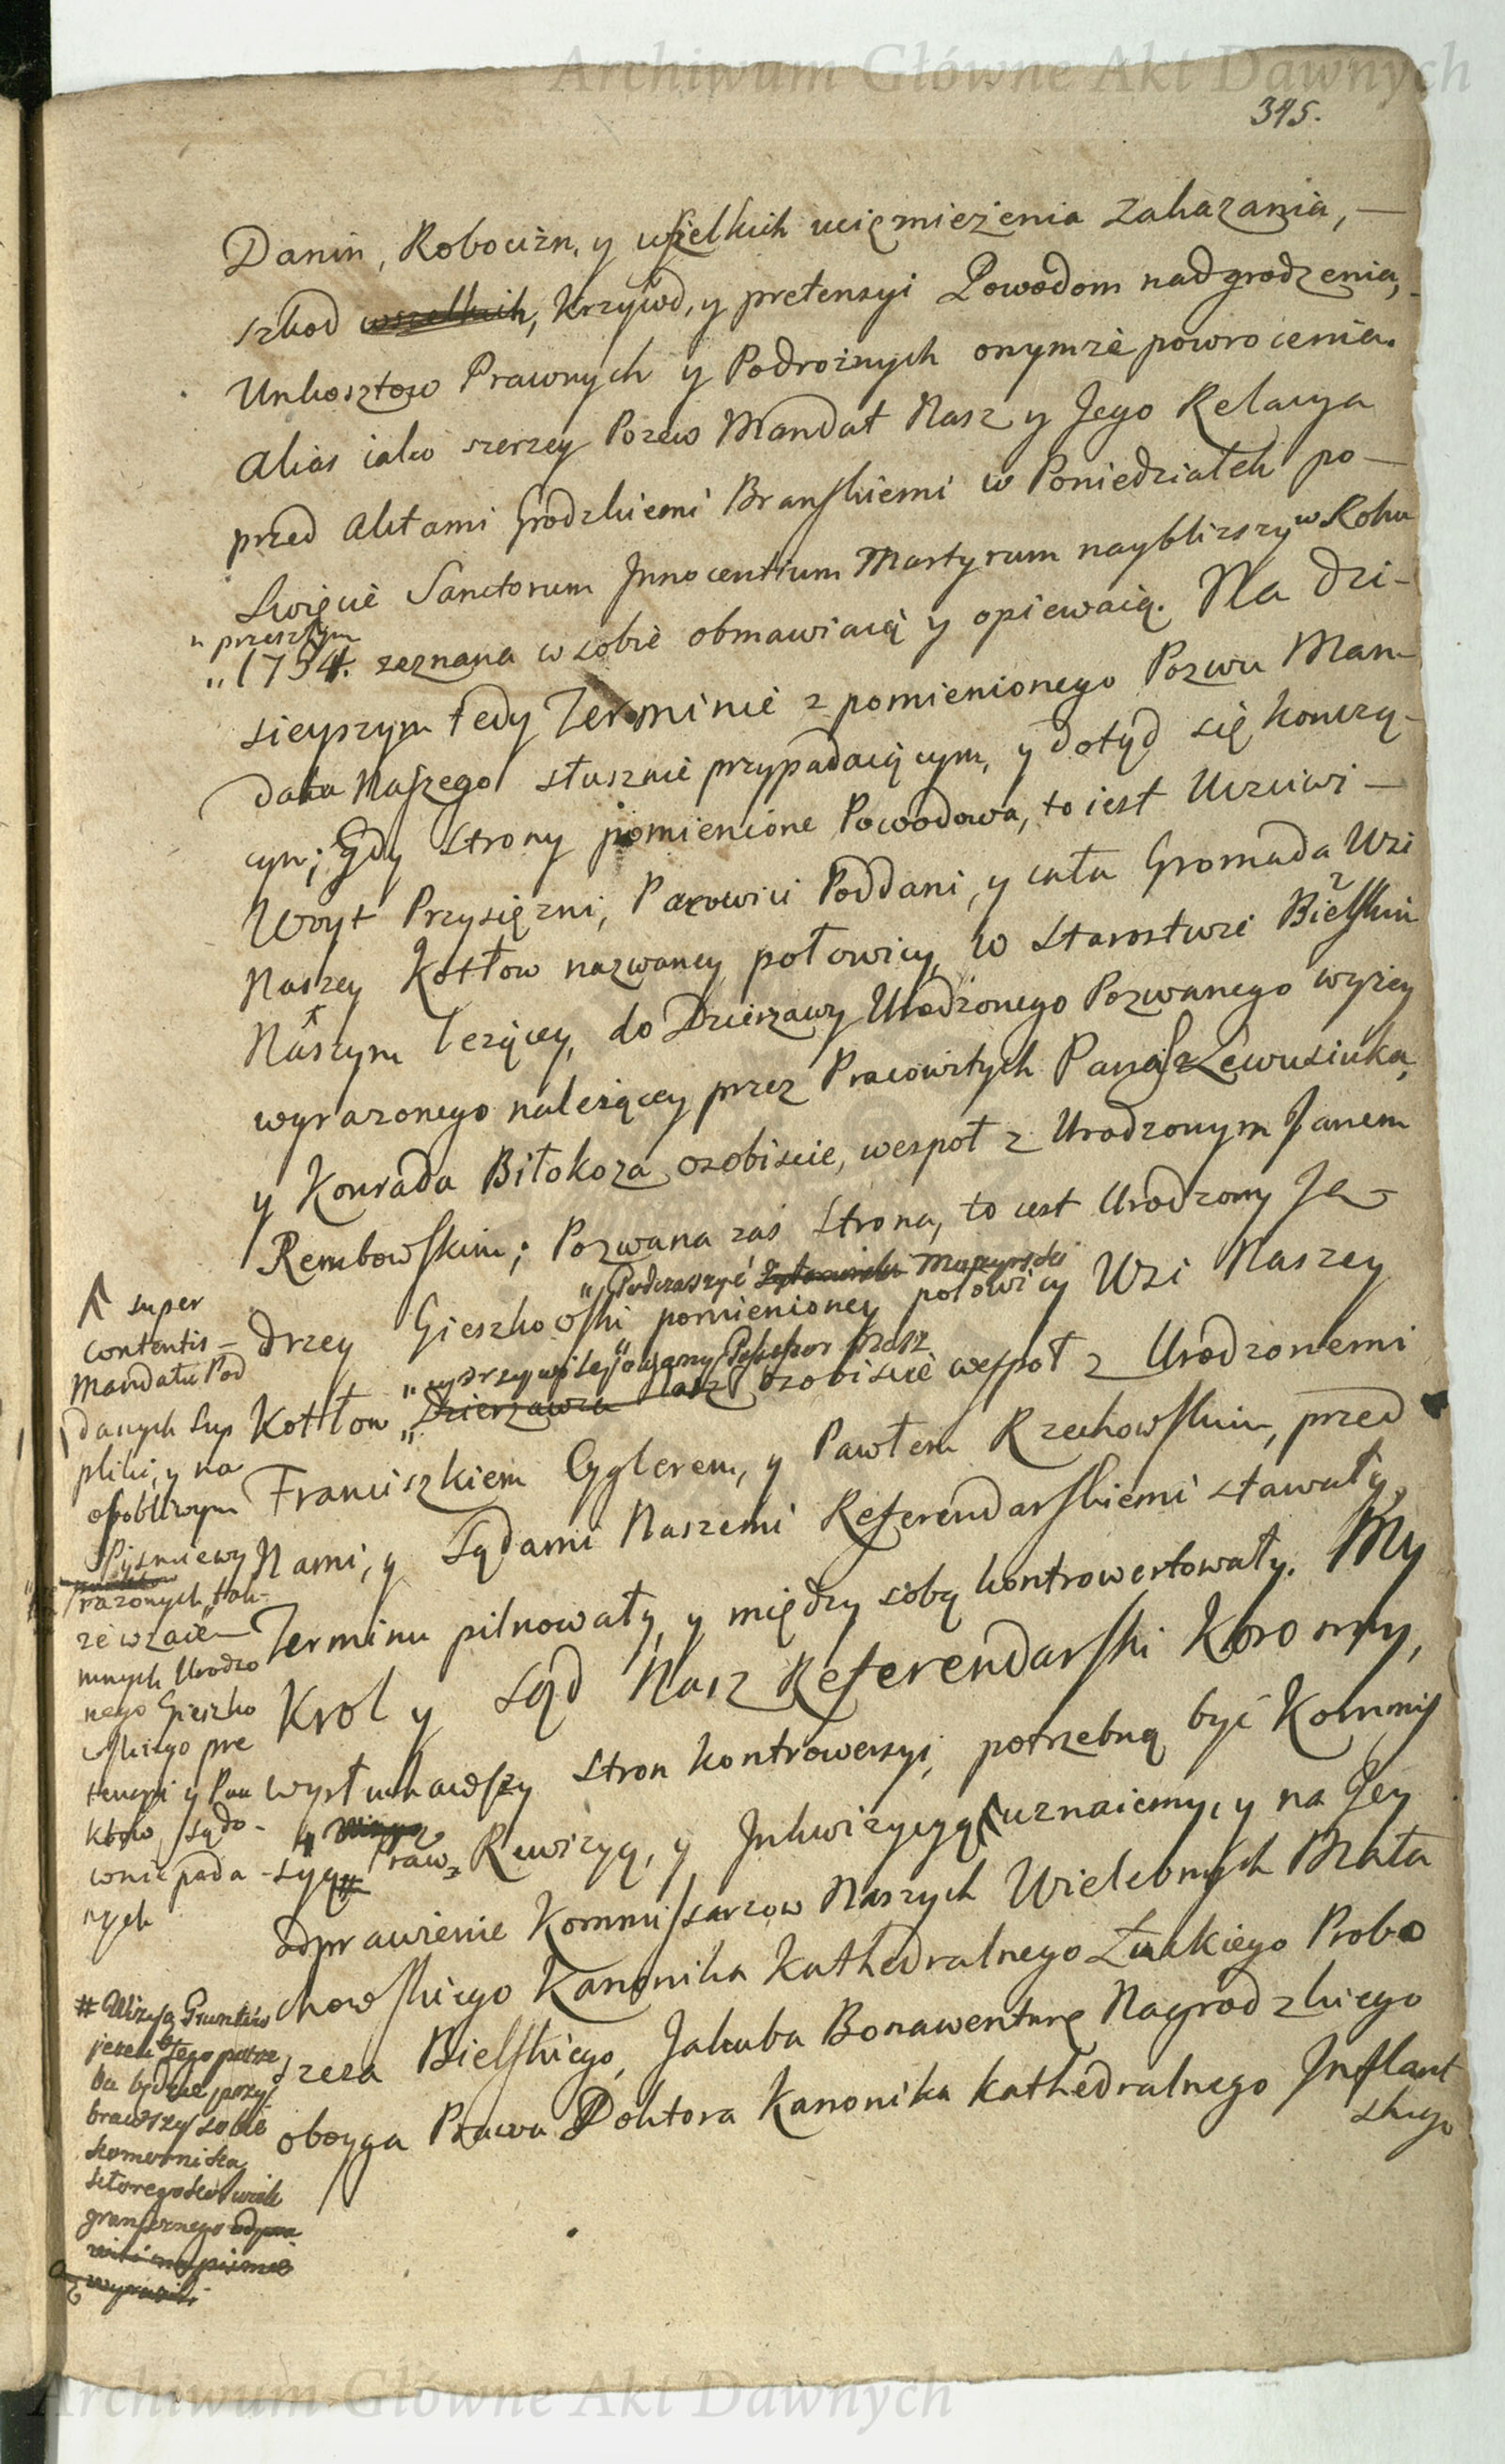 Archiwum Główne Akt Dawnych
345.
Danin, Robocizn, y wszelkich uciemiezenia zakazania, —
szkod wszelkich, krzywd, y pretensyi Powodom nadgrodzenia,
Unkosztow Prawnych y Podroznych onymze powrocenia.
Alias iako szerzey Pozew Mandat Nasz y Jego Relacya
przed Aktami Grodzkiemi Branskiemi w Poniedziałek po —
Swięcie Sanctorum Innocentium Martyrum nayblizszy w Roku
" przeszłym
" 1754. zeznana w sobie obmawiaią y opiewaią. Na dzi-
sieyszym tedy Terminie z pomienionego Pozwu Man-
datu Naszego słusznie przypadaiącym, y dotąd się konczą-
cym; Gdy Strony pomienione Powodowa, to iest Uczciwi —
Woyt Przysięzni, Pracowici Poddani, y cała Gromada Wsi
Naszey Kotłow nazwaney połowicy, w Starostwie Bielskim
Naszym lezącey, do Dzierzawy Urodzonego Pozwanego wyzey
wyrazonego nalezącey przez Pracowitych Panasa Lewusiuka,
y Konrada Biłokoza osobiscie, wespoł z Urodzonym Janem
Rembowskim; Pozwana zas Strona, to iest Urodzony Ję-
" Podczaszyc Mszczynski
drzey Gieszkowski pomienioney połowicy Wsi Naszey
Kotłow " Dzierzawca nasz osobiscie wespoł z Urodzonemi
Franciszkiem Cyglerem, y Pawłem Rzechowskim, przed
Nami, y Sądami Naszemi Referendarskiemi stawały,
Terminu pilnowały, y między sobą kontrowertowały. My
Krol y Sąd Nasz Referendarski Koronny,
wysłuchawszy Stron kontrowersyi, potrzebną być Kommis
syą # Rewizyą, y Inkwizycyą uznaiemy, y na Jey
odprawienie Kommissarzow Naszych Wielebnych Mała
chowskiego Kanonika Kathedralnego Łuckiego Probo
szcza Bielskiego, Jakuba Bonawenturę Nagrodzkiego
oboyga Prawa Doktora Kanonika Kathedralnego Inflant
skiego
super
contentis
Mandatu Pod
danych Sup
pliki, y na
osobliwym
Pismie wy
razonych, tak-
ze wzaie-
mnych Urodzo
nego Gieszko
wskiego pre
tensyi y Pun
ktow, sądo-
wnie poda-
nych
# Wizyą Gruntow
jezeli tego potrze
ba będzie, przy
brawszy sobie
komornika
ktoregokolwiek
granicznego
Archiwum Główne Akt Dawnych